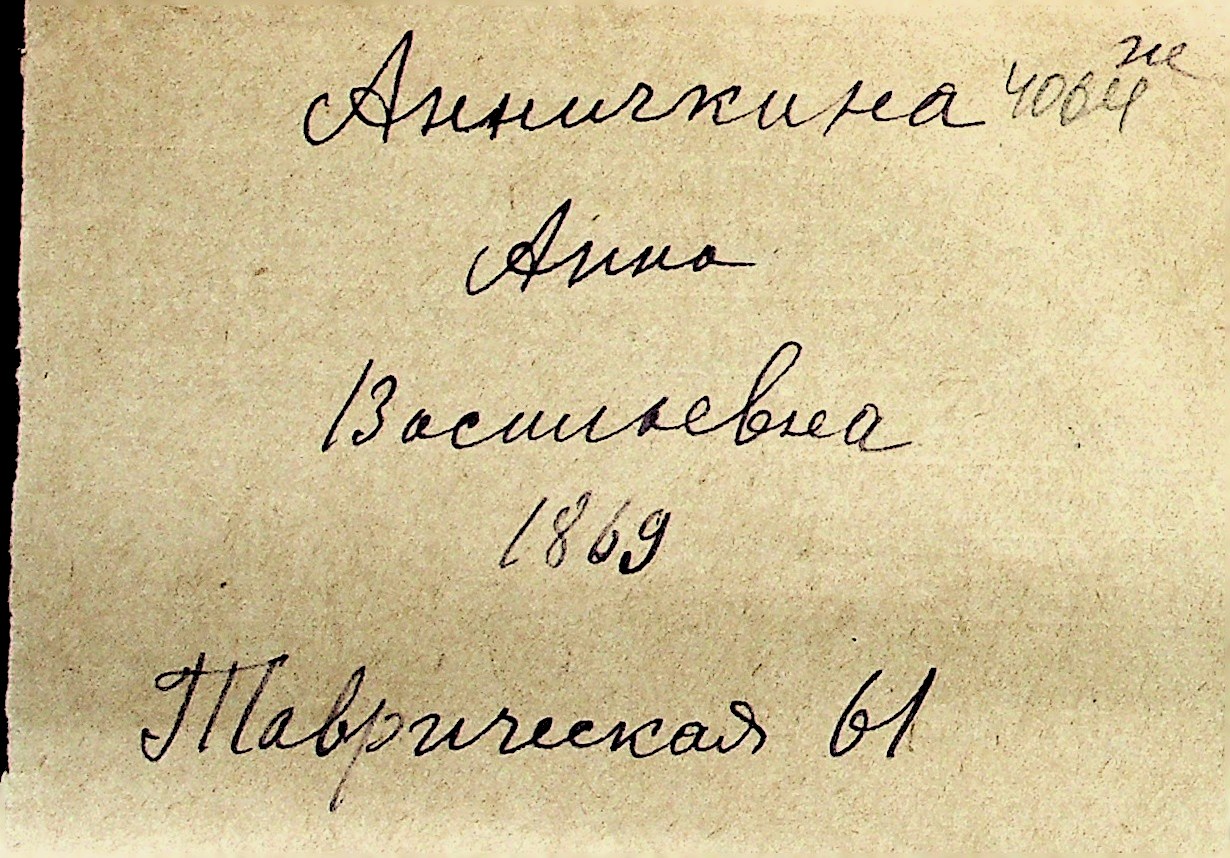 Анничкина
Анна
Васильевна
1869
Таврическая 61